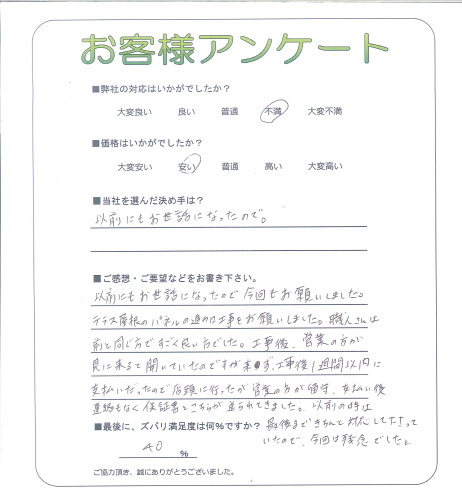 お客様アンケート
■弊社の対応はいかがでしたか？
大変良い 良い 普通 不満 大変不満
■価格はいかがでしたか？
大変安い 安い 普通 高い 大変高い
■当社を選んだ決め手は？
以前にもお世話になったので。
■ご感想・ご要望などをお書き下さい。
以前にもお世話になったので今回もお願いしました。
テラス屋根のパネルの 工事をお願いしました。職人さんは
前と同じ方ですごく良い方でした。工事後、営業の方が
見に来ると聞いていたのですが来ず、工事後1週間以内に
支払いだったので店頭に行ったが営業の方が留守、支払い後
連絡もなく保証書とちらしが送られてきました。以前の時は
■最後に、ズバリ満足度は何%ですか？
最後まできちんと対応して下さって
いたので、今回は残念でした。
40 %
ご協力頂き、誠にありがとうございました。